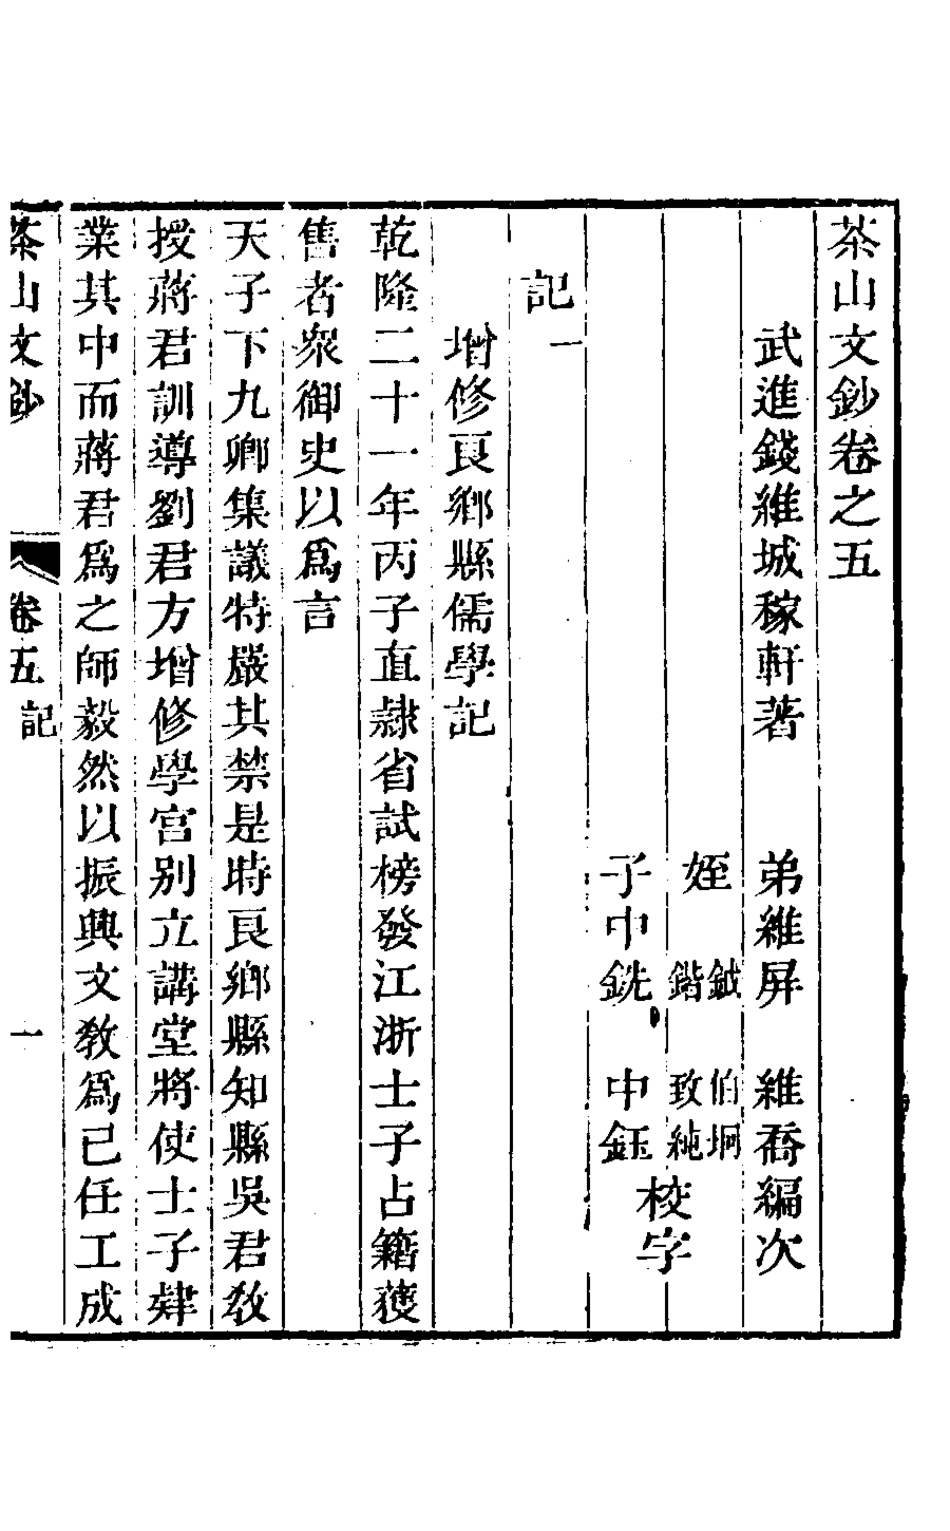 茶山文鈔卷之五
武進錢維城稼軒著　弟維屏　維喬編次
姪　鉞　伯坰
鍇　致純
子中銑　中鈺
校字
記一
增修良鄉縣儒學記
乾隆二十一年丙子直隸省試榜發江浙士子占籍獲
售者衆御史以爲言
天子下九卿集議特嚴其禁是時良鄉縣知縣吳君敎
授蔣君訓導劉君方增修學宫别立講堂將使士子肄
業其中而蔣君爲之師毅然以振興文敎爲己任工成
茶山文鈔　卷五　記　一